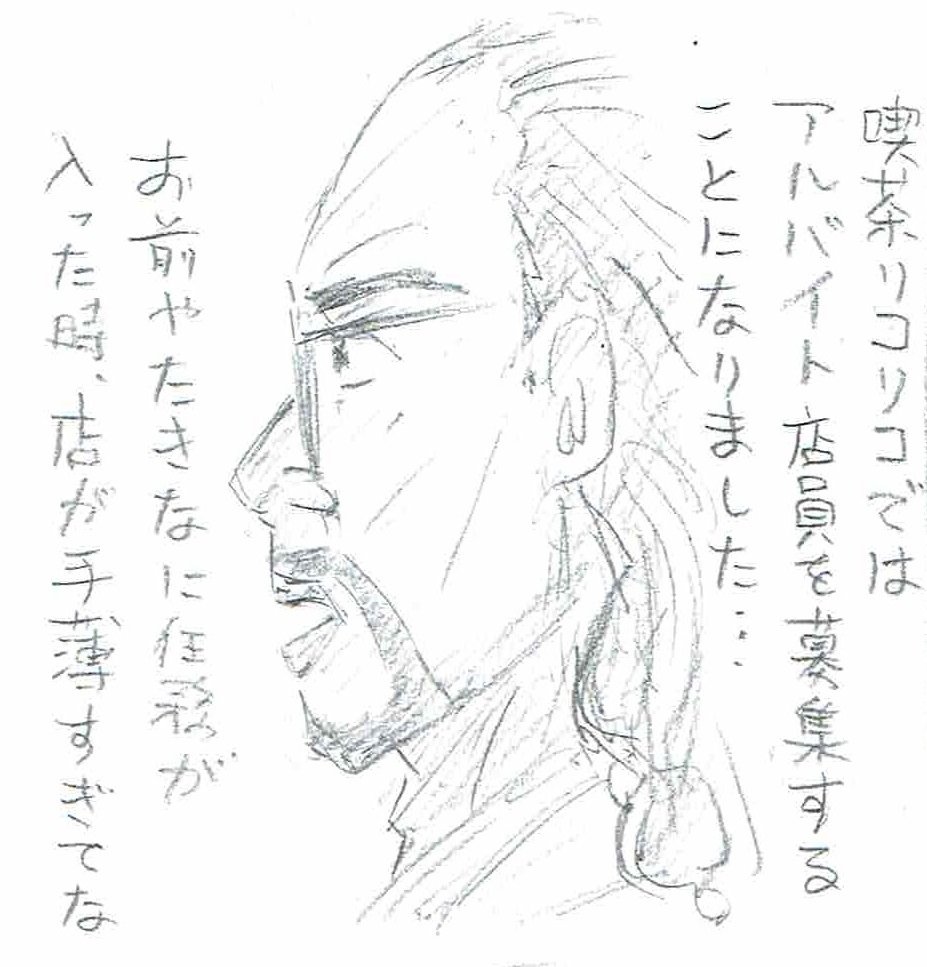 喫茶リコリコでは
アルバイト店員を募集する
ことになりました…
お前やたきなに任務が
入った時、店が手薄すぎてな